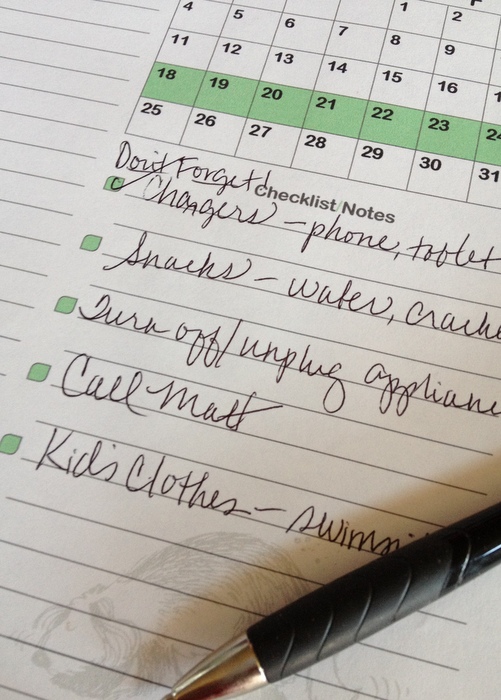 1 2
4 5 6 7 8 9
11 12 13 14 15 16
18 19 20 21 22 23 24
25 26 27 28 29 30 31
Don't Forget!
Checklist/Notes
Chargers – phone, tablet
Snacks – water, cracke
Turn off/unplug applianc
Call Matt
Kid's Clothes – swimsi